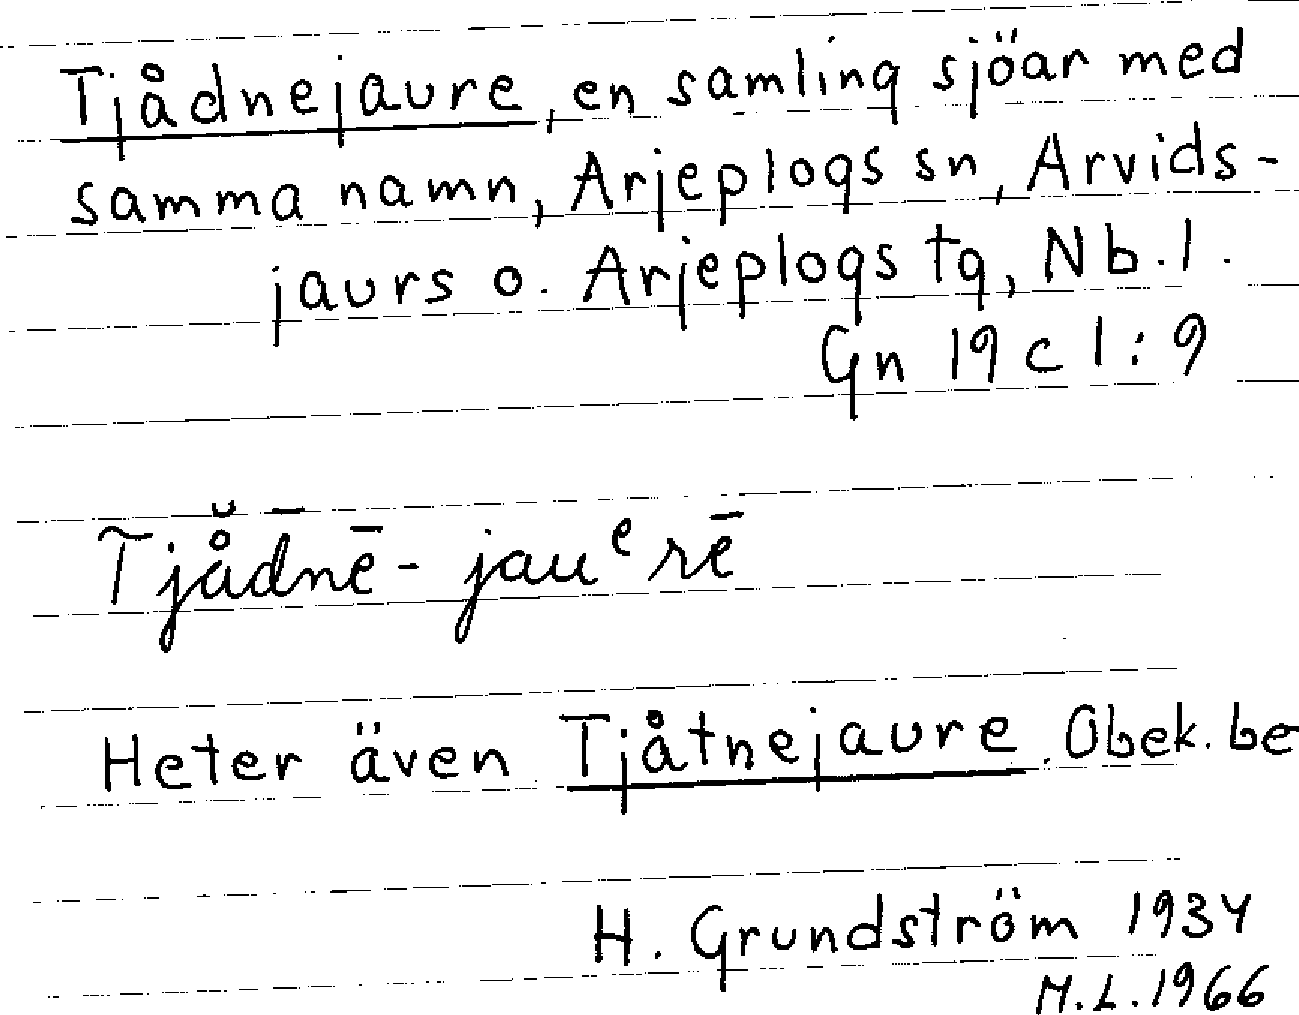 Tjådnejaure, en samling sjöar med
samma namn, Arjeplogs sn, Arvids-
jaurs o. Arjeplogs tg, Nb. l.
Gn 19 c 1:9
Tjå̆d̄nē-jauᵉrē
Heter även Tjåtnejaure. Obek. be
H. Grundström 1934
M.L. 1966